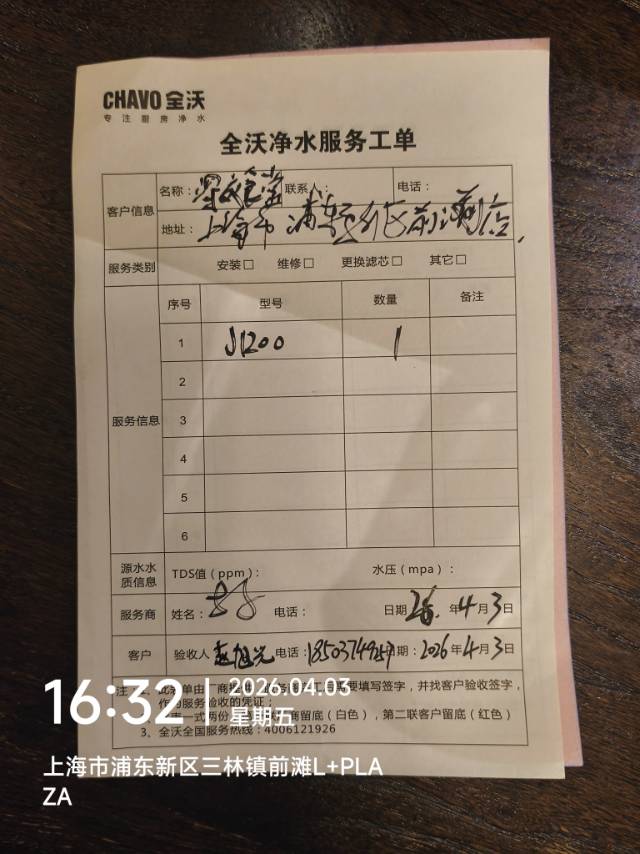 CHAVO 全沃
专注厨房净水
全沃净水服务工单
客户信息
名称： 联系人： 电话：
地址：上海市浦东新区前滩店
服务类别 安装□ 维修□ 更换滤芯□ 其它□
服务信息
序号 型号 数量 备注
1 J1200 1
2
3
4
5
6
源水水质信息 TDS值（ppm）： 水压（mpa）：
服务商 姓名： 电话： 日期 26. 年4月3日
客户 验收人 赵旭光 电话： 日期：2026年4月3日
注：1、此 单由厂商 需要填写签字，并找客户验收签字，
作为服务验收的凭证；
一式两份 商留底（白色），第二联客户留底（红色）
3、全沃全国服务热线：4006121926
16:32
2026.04.03
星期五
上海市浦东新区三林镇前滩L+PLA
ZA